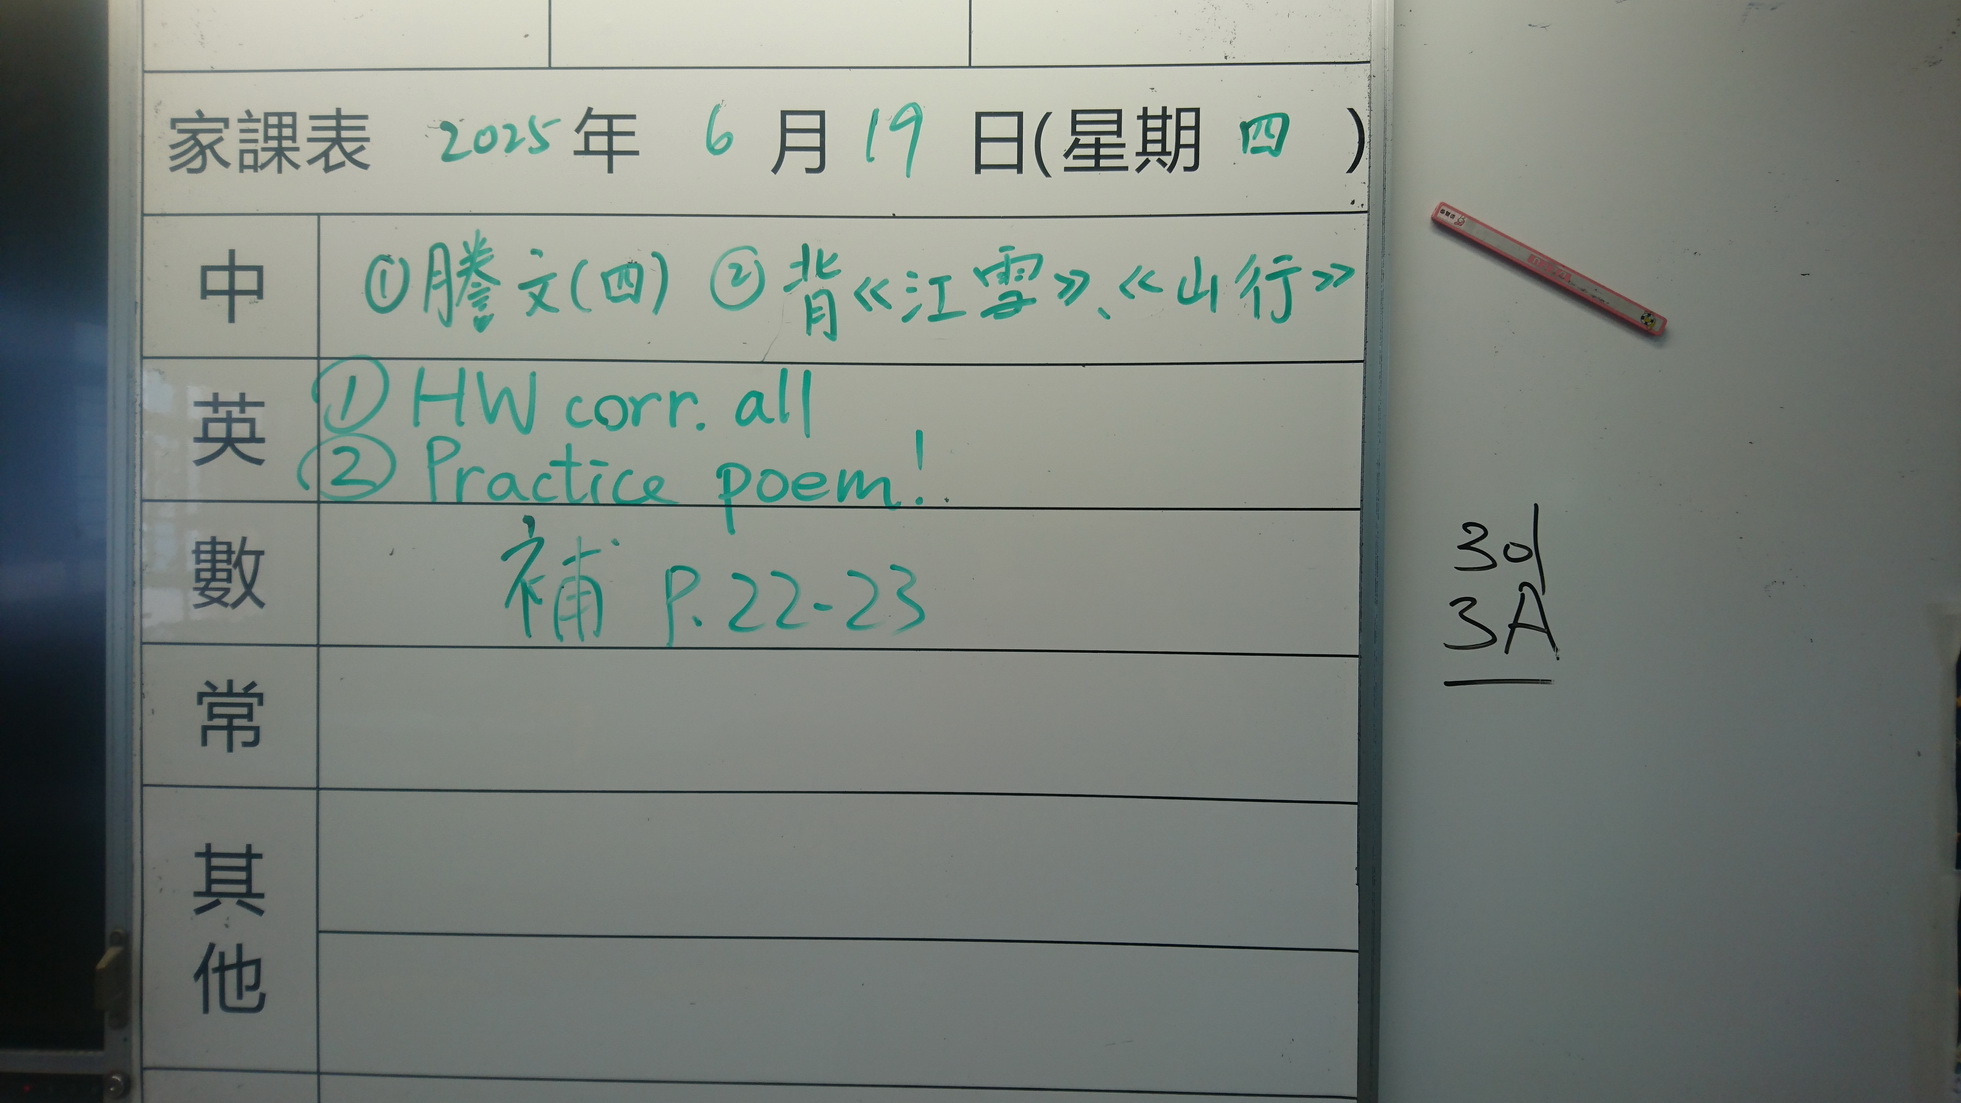 家課表 2025 年 6 月 19 日(星期 四 )
中 ①謄文(四) ②背《江雪》、《山行》
英 ① HW corr. all
② Practice poem!
數 補 P.22-23
常
其他
3d
3A